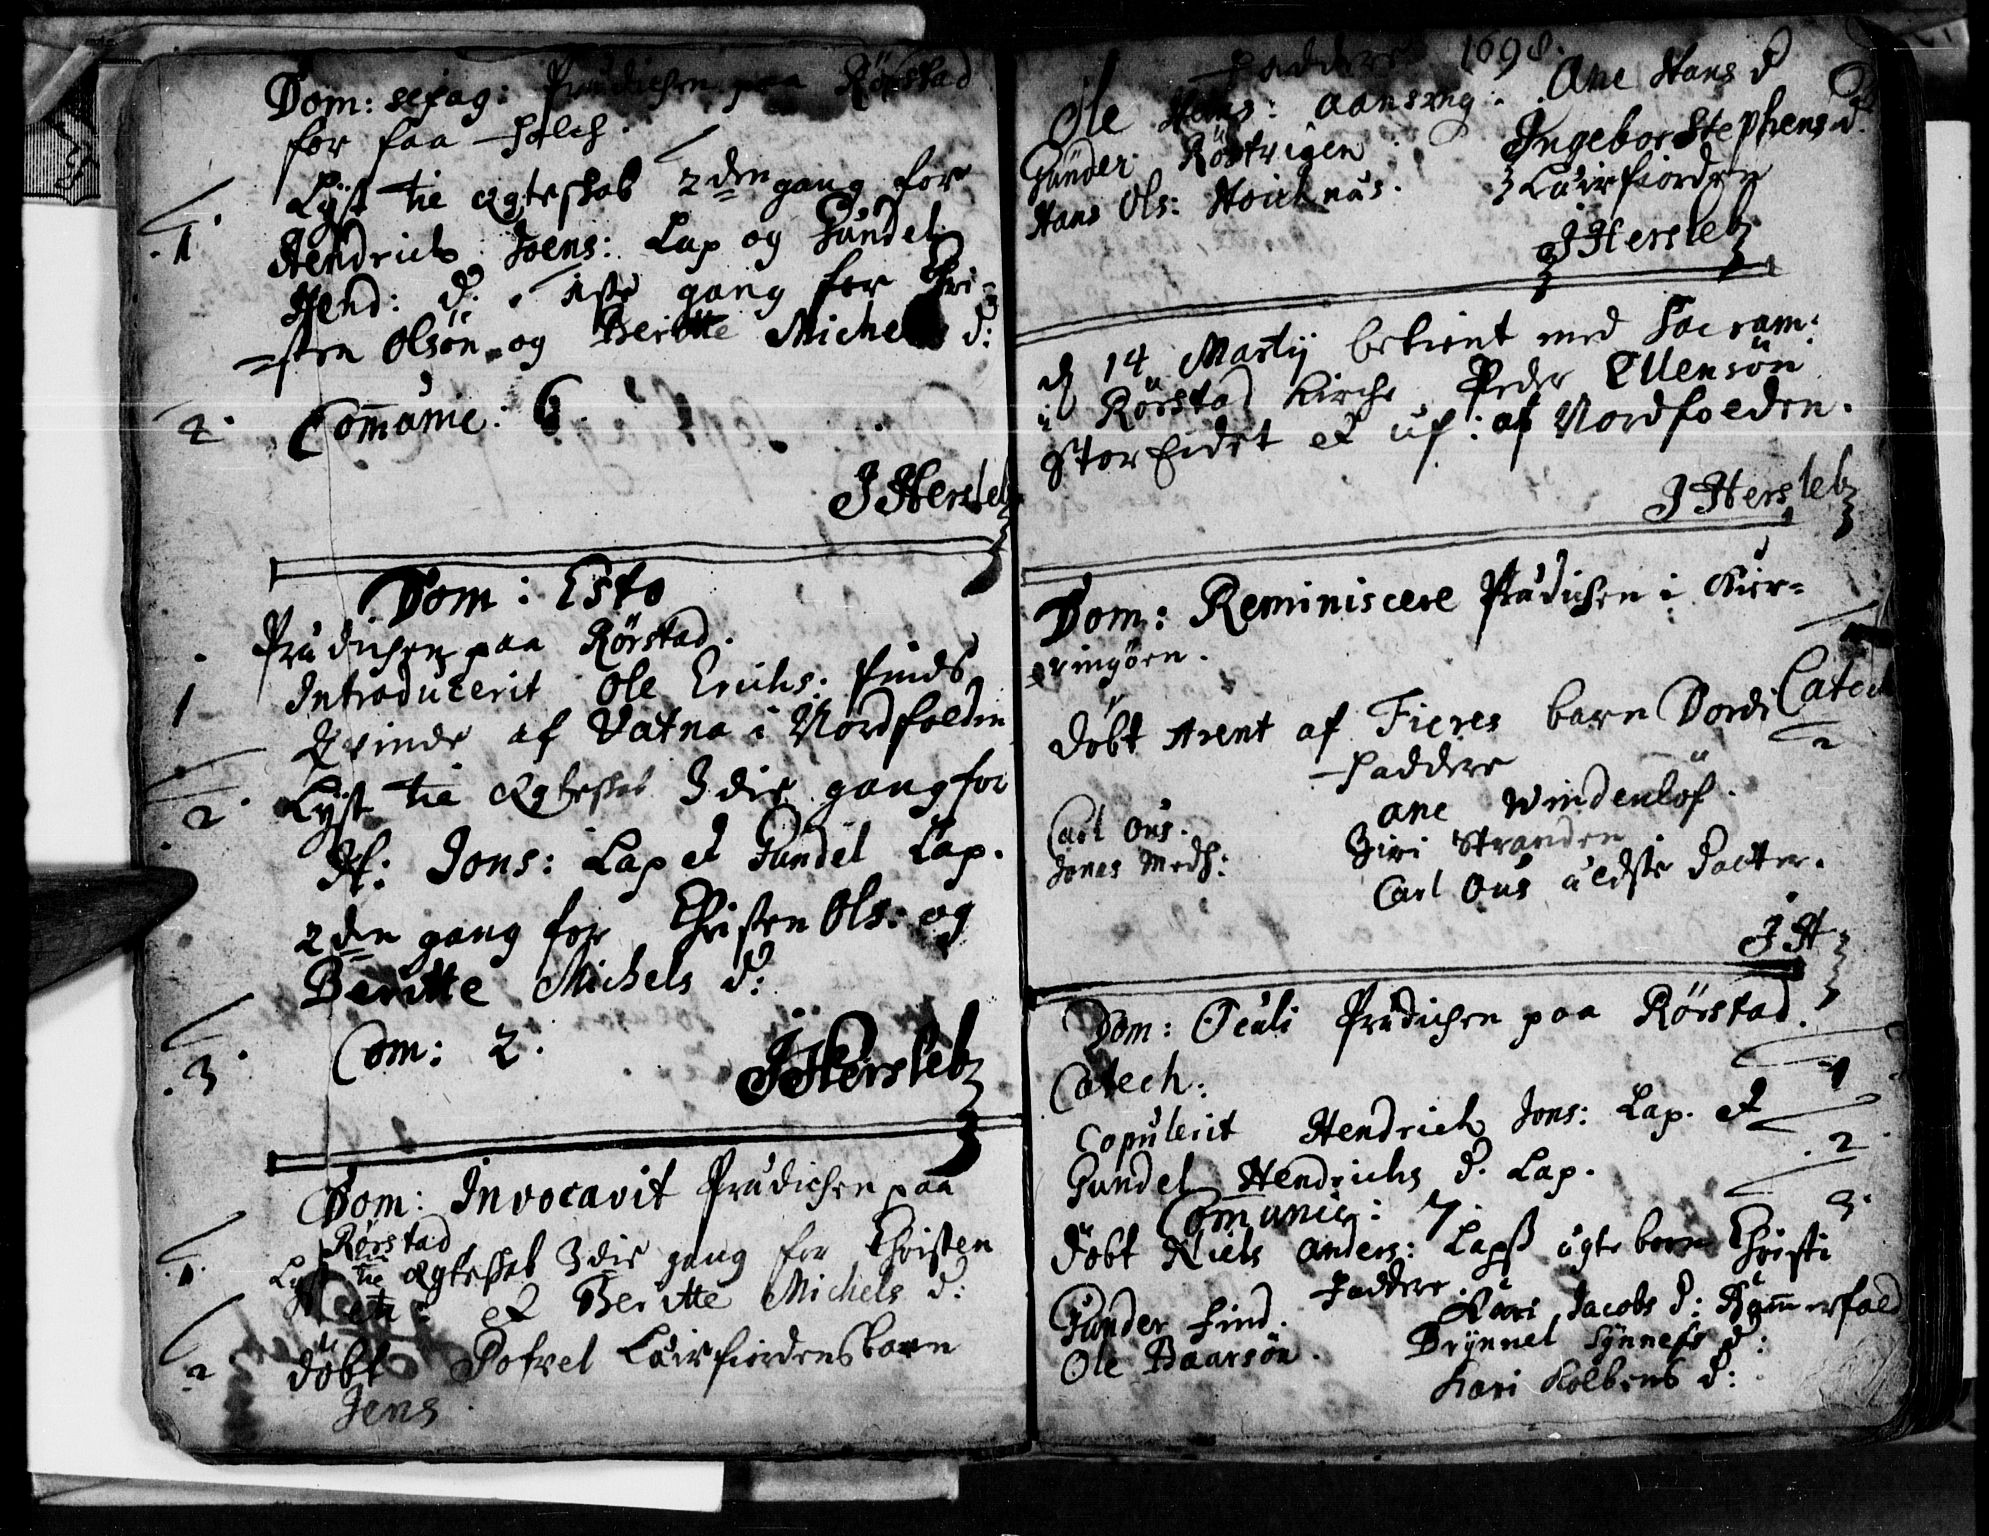 Dom: sexag: Prædichen paa Rörstad
for faa Folch.
1. Lyst til ægteskab 2den gang for
Hendrich Joens: Lap og Gundel
Hend: d: 1ste gang for Chri-
sten Olsön og Beritte Michels d:
2. Comunic: 6.
J Hersleb
Dom: Esto
Prædichen paa Rörstad.
1 Introducerit Ole Erichs: Finds
Qvinde af Vatna i Nordfolden
2. Lyst til ægteskab 3die gang for
H: Jons: Lap et Gundel Lap.
2den gang for Christen Ols: og
Beritte Michels d:
3. Com: 2.
J Hersleb
Dom: Invocavit Prædichen paa
Rörstad
1. Lyst til ægteskab 3die gang for Christen
et Beritte Michels d:
2 döbt Povel Lairfiordens barn
Jens
Faddere 1698.
Ole Hans: Aansvig. Ane Hans d
Gunder Röstvigen. Ingebor Stephens d.
Hans Ols: Hoichnäs. Lairfiorden
J Hersleb
d 14 Martij betient med Sacram:
i Rörstad Kirche Peder Ellensön
Storeidet et ux: af Nordfolden.
J Hersleb
Dom: Reminiscere Prædichen i Kier-
ringöen.
Catech
döbt Arent af Fieres barn Dordi
2
Faddere
Carl Ous. Ane Windenlöf.
Jonas Medh: Siri Stranden
Carl Ous ældste Datter.
J H
Dom: Oculi Prædichen paa Rörstad.
Catech. 1
Copulerit Hendrich Jons: Lap. et 2.
Gundel Hendrichs d. Lap.
Comunic: 7. 3.
döbt Niels Anders: Laps ægte barn Christi
Faddere.
Gunder Find. Kari Jacobs d: Römmerfold
Ole Baarsön. Brynnel Synnefs d:
Kari Kolbens d: